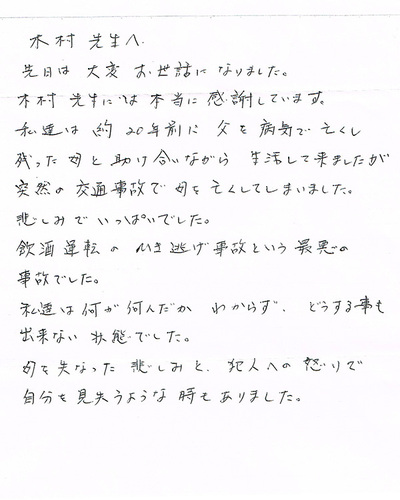 木村 先生へ
先日は 大変 お世話に なりました。
木村 先生には 本当に 感謝しています。
私達は 約 20年前に 父を 病気で 亡くし
残った 母と 助け合いながら 生活して来ましたが
突然の 交通事故で 母を 亡くしてしまいました。
悲しみで いっぱいでした。
飲酒運転の ひき逃げ事故という 最悪の
事故でした。
私達は 何が何んだか わからず、どうする事も
出来ない 状態でした。
母を失なった 悲しみと、犯人への 怒りで
自分を 見失うような 時も ありました。